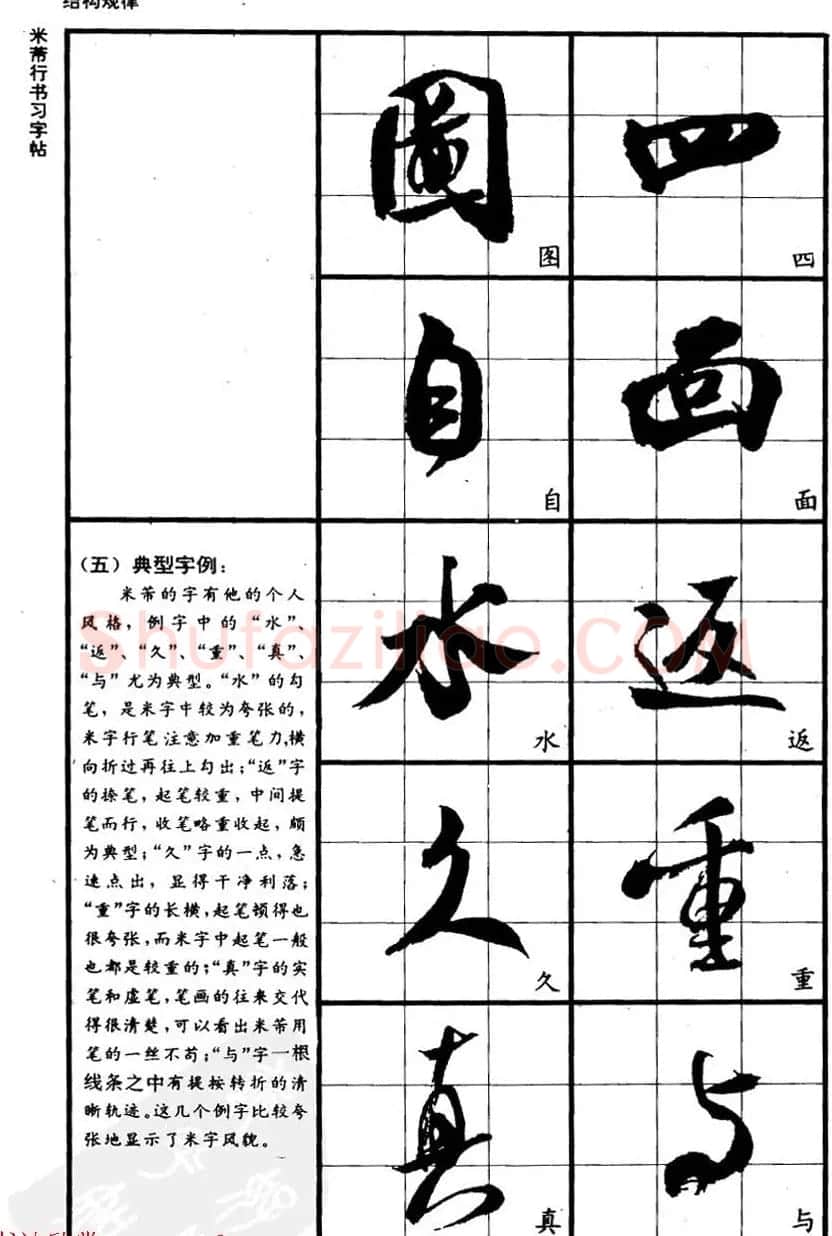 结构规律
米芾行书习字帖
四
四
圖
图
面
面
自
自
返
返
水
水
重
重
久
久
与
与
真
真
(五)典型字例:
米芾的字有他的个人
风格,例字中的“水”、
“返”、“久”、“重”、“真”、
“与”尤为典型。“水”的勾
笔,是米字中较为夸张的,
米字行笔注意加重笔力,横
向折过再往上勾出;“返”字
的捺笔,起笔较重,中间提
笔而行,收笔略重收起,颇
为典型;“久”字的一点,急
速点出,显得干净利落;
“重”字的长横,起笔顿得也
很夸张,而米字中起笔一般
也都是较重的;“真”字的实
笔和虚笔,笔画的往来交代
得很清楚,可以看出米芾用
笔的一丝不苟;“与”字一根
线条之中有提按转折的清
晰轨迹。这几个例字比较夸
张地显示了米字风貌。
Shufaziliao.COM